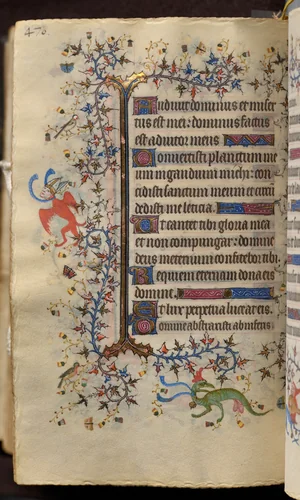 478
Audivit dominus et miser
tus est mei: dominus factus
est adiutor meus
Convertisti planctum me
um in gaudium michi: con
cidisti saccum meum et circum
dedisti me leticia.
Ut cantet tibi gloria mea
et non compungar: domine
deus meus in eternum confitebor tibi.
Requiem eternam dona eis
domine.
Et lux perpetua luceat eis.
Domine abstraxisti ab inferis